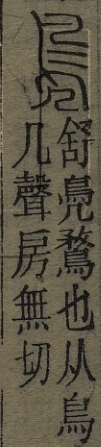 鳧
舒鳧鶩也从鳥
几聲房無切